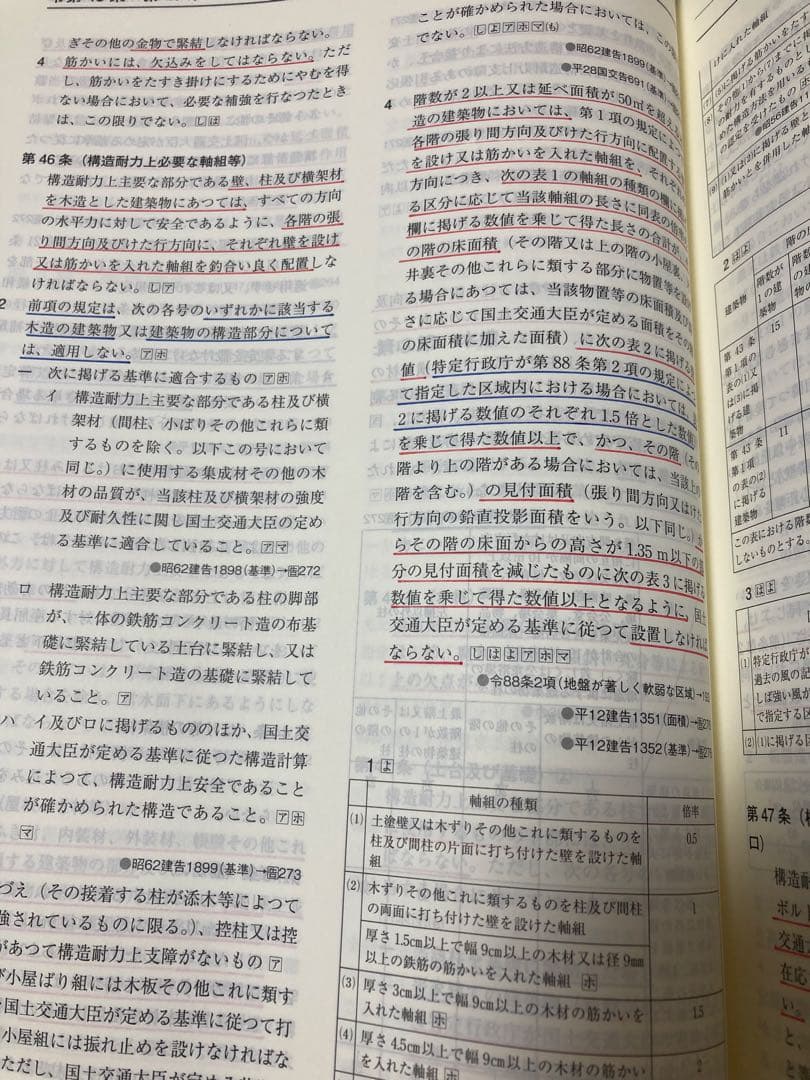 ぎその他の金物で緊結しなければならない。
4 筋かいには、欠込みをしてはならない。ただ
し、筋かいをたすき掛けにするためにやむを得
ない場合において、必要な補強を行なつたとき
は、この限りでない。しほ
第46条（構造耐力上必要な軸組等）
構造耐力上主要な部分である壁、柱及び横架材
を木造とした建築物にあつては、すべての方向
の水平力に対して安全であるように、各階の張
り間方向及びけた行方向に、それぞれ壁を設け
又は筋かいを入れた軸組を釣合い良く配置しな
ければならない。しア
2 前項の規定は、次の各号のいずれかに該当する
木造の建築物又は建築物の構造部分について
は、適用しない。アホ
一 次に掲げる基準に適合するもの アホ
イ 構造耐力上主要な部分である柱及び横
架材（間柱、小ばりその他これらに類
するものを除く。以下この号において
同じ。）に使用する集成材その他の木
材の品質が、当該柱及び横架材の強度
及び耐久性に関し国土交通大臣の定め
る基準に適合していること。アマ
●昭62建告1898（基準）→告272
ロ 構造耐力上主要な部分である柱の脚部
が、一体の鉄筋コンクリート造の布基
礎に緊結している土台に緊結し、又は
鉄筋コンクリート造の基礎に緊結して
いること。ア
ハ イ及びロに掲げるもののほか、国土交
通大臣が定める基準に従つた構造計算
によつて、構造耐力上安全であること
が確かめられた構造であること。アホ
マ
●昭62建告1899（基準）→告273
づえ（その接着する柱が添木等によつて
強されているものに限る。）、控柱又は控
があつて構造耐力上支障がないもの ア
び小屋ばり組には木板その他これに類す
国土交通大臣が定める基準に従つて打
小屋組には振れ止めを設けなければな
ただし、国土交通大臣が定める基
ことが確かめられた場合においては、この
でない。しよアホマ(も)
●昭62建告1899（基準）
●平28国交告691（基準）
4 階数が2以上又は延べ面積が50㎡を超え
造の建築物においては、第1項の規定によ
各階の張り間方向及びけた行方向に配置する
を設け又は筋かいを入れた軸組を、それぞれ
方向につき、次の表1の軸組の種類の欄に掲
る区分に応じて当該軸組の長さに同表の倍率
欄に掲げる数値を乗じて得た長さの合計が、
の階の床面積（その階又は上の階の小屋裏、
井裏その他これらに類する部分に物置等を設
る場合にあつては、当該物置等の床面積及び
さに応じて国土交通大臣が定める面積をその
の床面積に加えた面積）に次の表2に掲げる
値（特定行政庁が第88条第2項の規定によ
て指定した区域内における場合においては、
2に掲げる数値のそれぞれ1.5倍とした数値
を乗じて得た数値以上で、かつ、その階（その
階より上の階がある場合においては、当該上の
階を含む。）の見付面積（張り間方向又はけた
行方向の鉛直投影面積をいう。以下同じ。）か
らその階の床面からの高さが1.35m以下の部
分の見付面積を減じたものに次の表3に掲げる
数値を乗じて得た数値以上となるように、国土
交通大臣が定める基準に従つて設置しなければ
ならない。しはよアホマ
●令88条2項（地盤が著しく軟弱な区域）→
●平12建告1351（面積）→告
●平12建告1352（基準）→告
1 よ
軸組の種類 倍率
(1) 土塗壁又は木ずりその他これに類するものを
柱及び間柱の片面に打ち付けた壁を設けた軸
組 0.5
(2) 木ずりその他これに類するものを柱及び間柱
の両面に打ち付けた壁を設けた軸組
厚さ1.5cm以上で幅9cm以上の木材又は径9mm
以上の鉄筋の筋かいを入れた軸組 ホ
1
(3) 厚さ3cm以上で幅9cm以上の木材の筋かいを
入れた軸組 ホ 1.5
(4) 厚さ4.5cm以上で幅9cm以上の木材の筋かい
を入れた軸組 ホ 2
けに入れた軸組
2 はよ
建築物
階数が
1の建
築物
第43条
第1項
の表の(1)
又は(3)に
掲げる建
築物
15
第43条
第1項
の表の(2)
に掲げる
建築物
11
この表における階数
しないものとする。
3 はよ
(1) 特定行政庁が
過去の風の記
しば強い風が
で指定する区
(2) (1)に掲げる区
第47条（
ロ）
構造耐
ボルト
交通
在応
い。